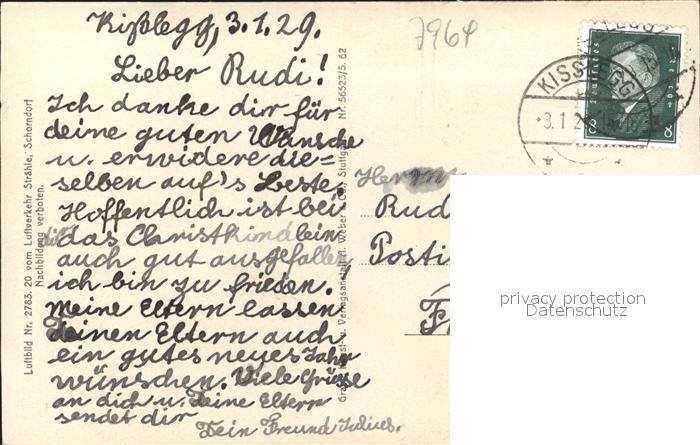 Kißlegg, 3.1.29.
7964
Lieber Rudi!
Ich danke dir für
deine guten Wünsche
u. erwidere die=
selben auf's Beste.
Hoffentlich ist bei
das Christkindlein
auch gut ausgefallen,
ich bin zu frieden.
Meine Eltern lassen
Deinen Eltern auch
ein gutes neues Jahr
wünschen. Viele Grüsse
an dich u. Deine Eltern
sendet dir
Dein Freund Julius.
Luftbild Nr. 2783. 20 vom Luftverkehr Strähle, Schorndorf
Nachbildung verboten.
u. Verlagsanstalt Weber & Co., Stuttgart Nr. 56523/5. 62
KISSLEGG
3.1.2
8 8
Herrn
Rud
Posti
privacy protection
Datenschutz